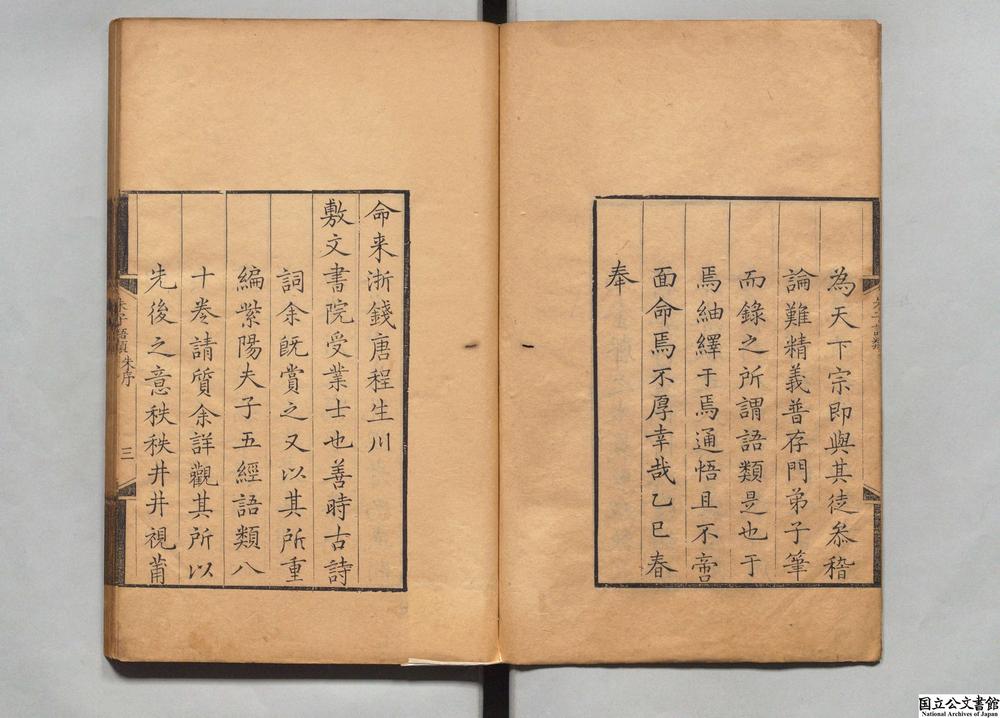 為天下宗即與其徒叅稽
論難精義普存門弟子筆
而錄之所謂語類是也于
焉紬繹于焉通悟且不啻
面命焉不厚幸哉乙巳春
奉
命来浙錢唐程生川
敷文書院受業士也善時古詩
詞余旣賞之又以其所重
編紫陽夫子五經語類八
十卷請質余詳觀其所以
先後之意秩秩井井視莆
朱序
三
国立公文書館
National Archives of Japan